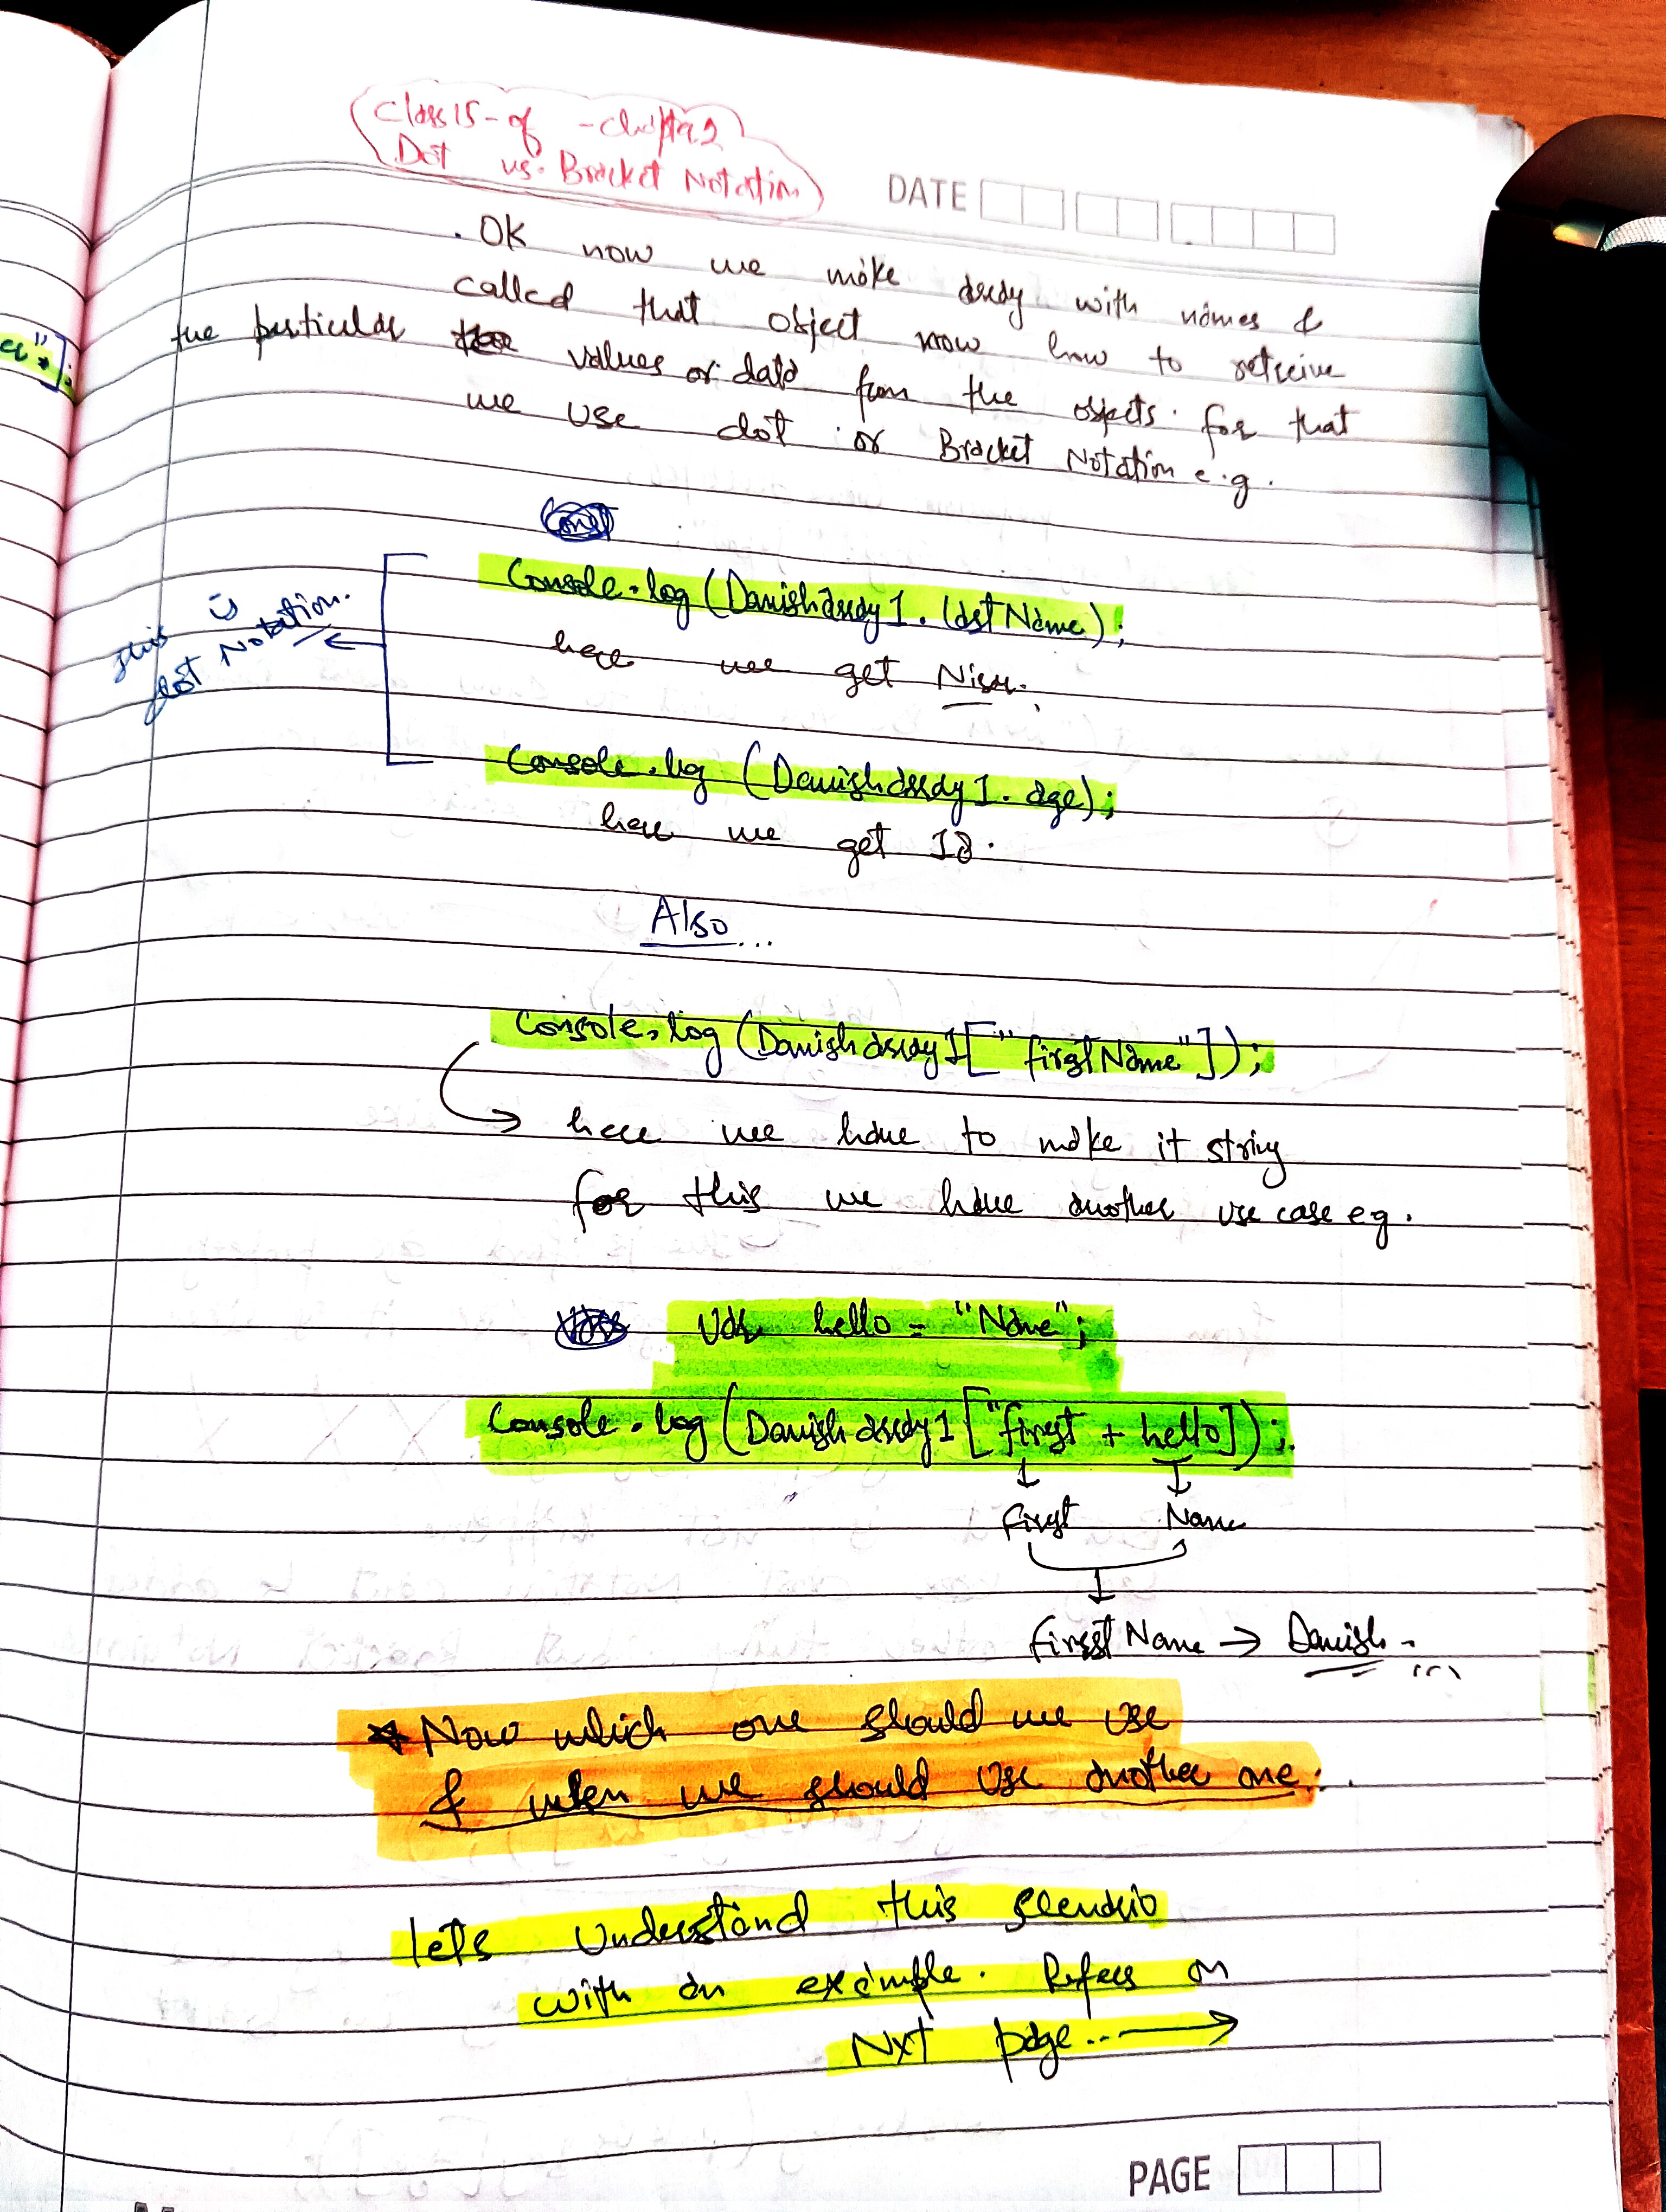 Class 15 - of - chapter 2
Dot vs. Bracket Notation
DATE
. OK now we make array with names &
called that object now how to retreive
the particular values or data from the objects. for that
we use dot or Bracket Notation e.g.
Console.log (Danisharray1.lastName);
here we get Nisar.
this is
dot Notation.
Console.log (Danisharray1.age);
here we get 18.
Also...
Console.log (Danisharray1["firstName"]);
here we have to make it string
for this we have another use case eg.
Var hello = "Name";
Console.log (Danisharray1["first + hello]);
first Name
firstName → Danish
* Now which one should we use
& when we should use another one.
lets understand this scenario
with an example. Refer on
Nxt page.. →
PAGE